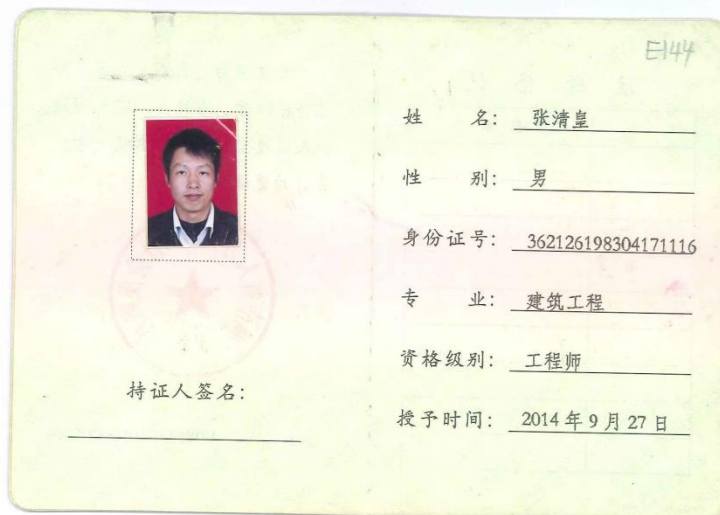 E144
姓 名: 张清皇
性 别: 男
身份证号: 362126198304171116
专 业: 建筑工程
资格级别: 工程师
授予时间: 2014年9月27日
持证人签名: